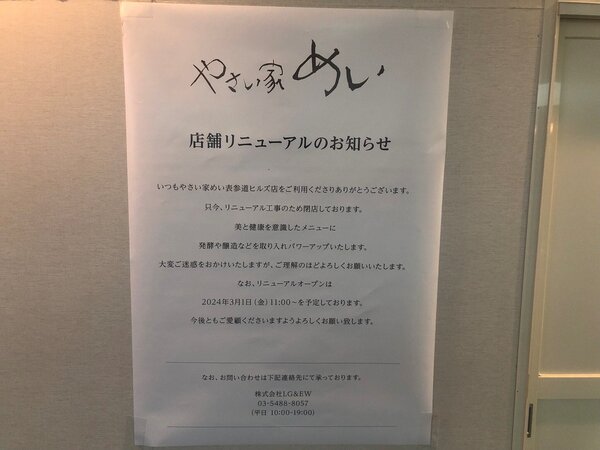 やさい家 めい
店舗リニューアルのお知らせ
いつもやさい家めい表参道ヒルズ店をご利用くださりありがとうございます。
只今、リニューアル工事のため閉店しております。
美と健康を意識したメニューに
発酵や醸造などを取り入れパワーアップいたします。
大変ご迷惑をおかけいたしますが、ご理解のほどよろしくお願いいたします。
なお、リニューアルオープンは
2024年3月1日(金)11:00~を予定しております。
今後ともご愛顧くださいますようよろしくお願い致します。
なお、お問い合わせは下記連絡先にて承っております。
株式会社LG&EW
03-5488-8057
(平日 10:00-19:00)